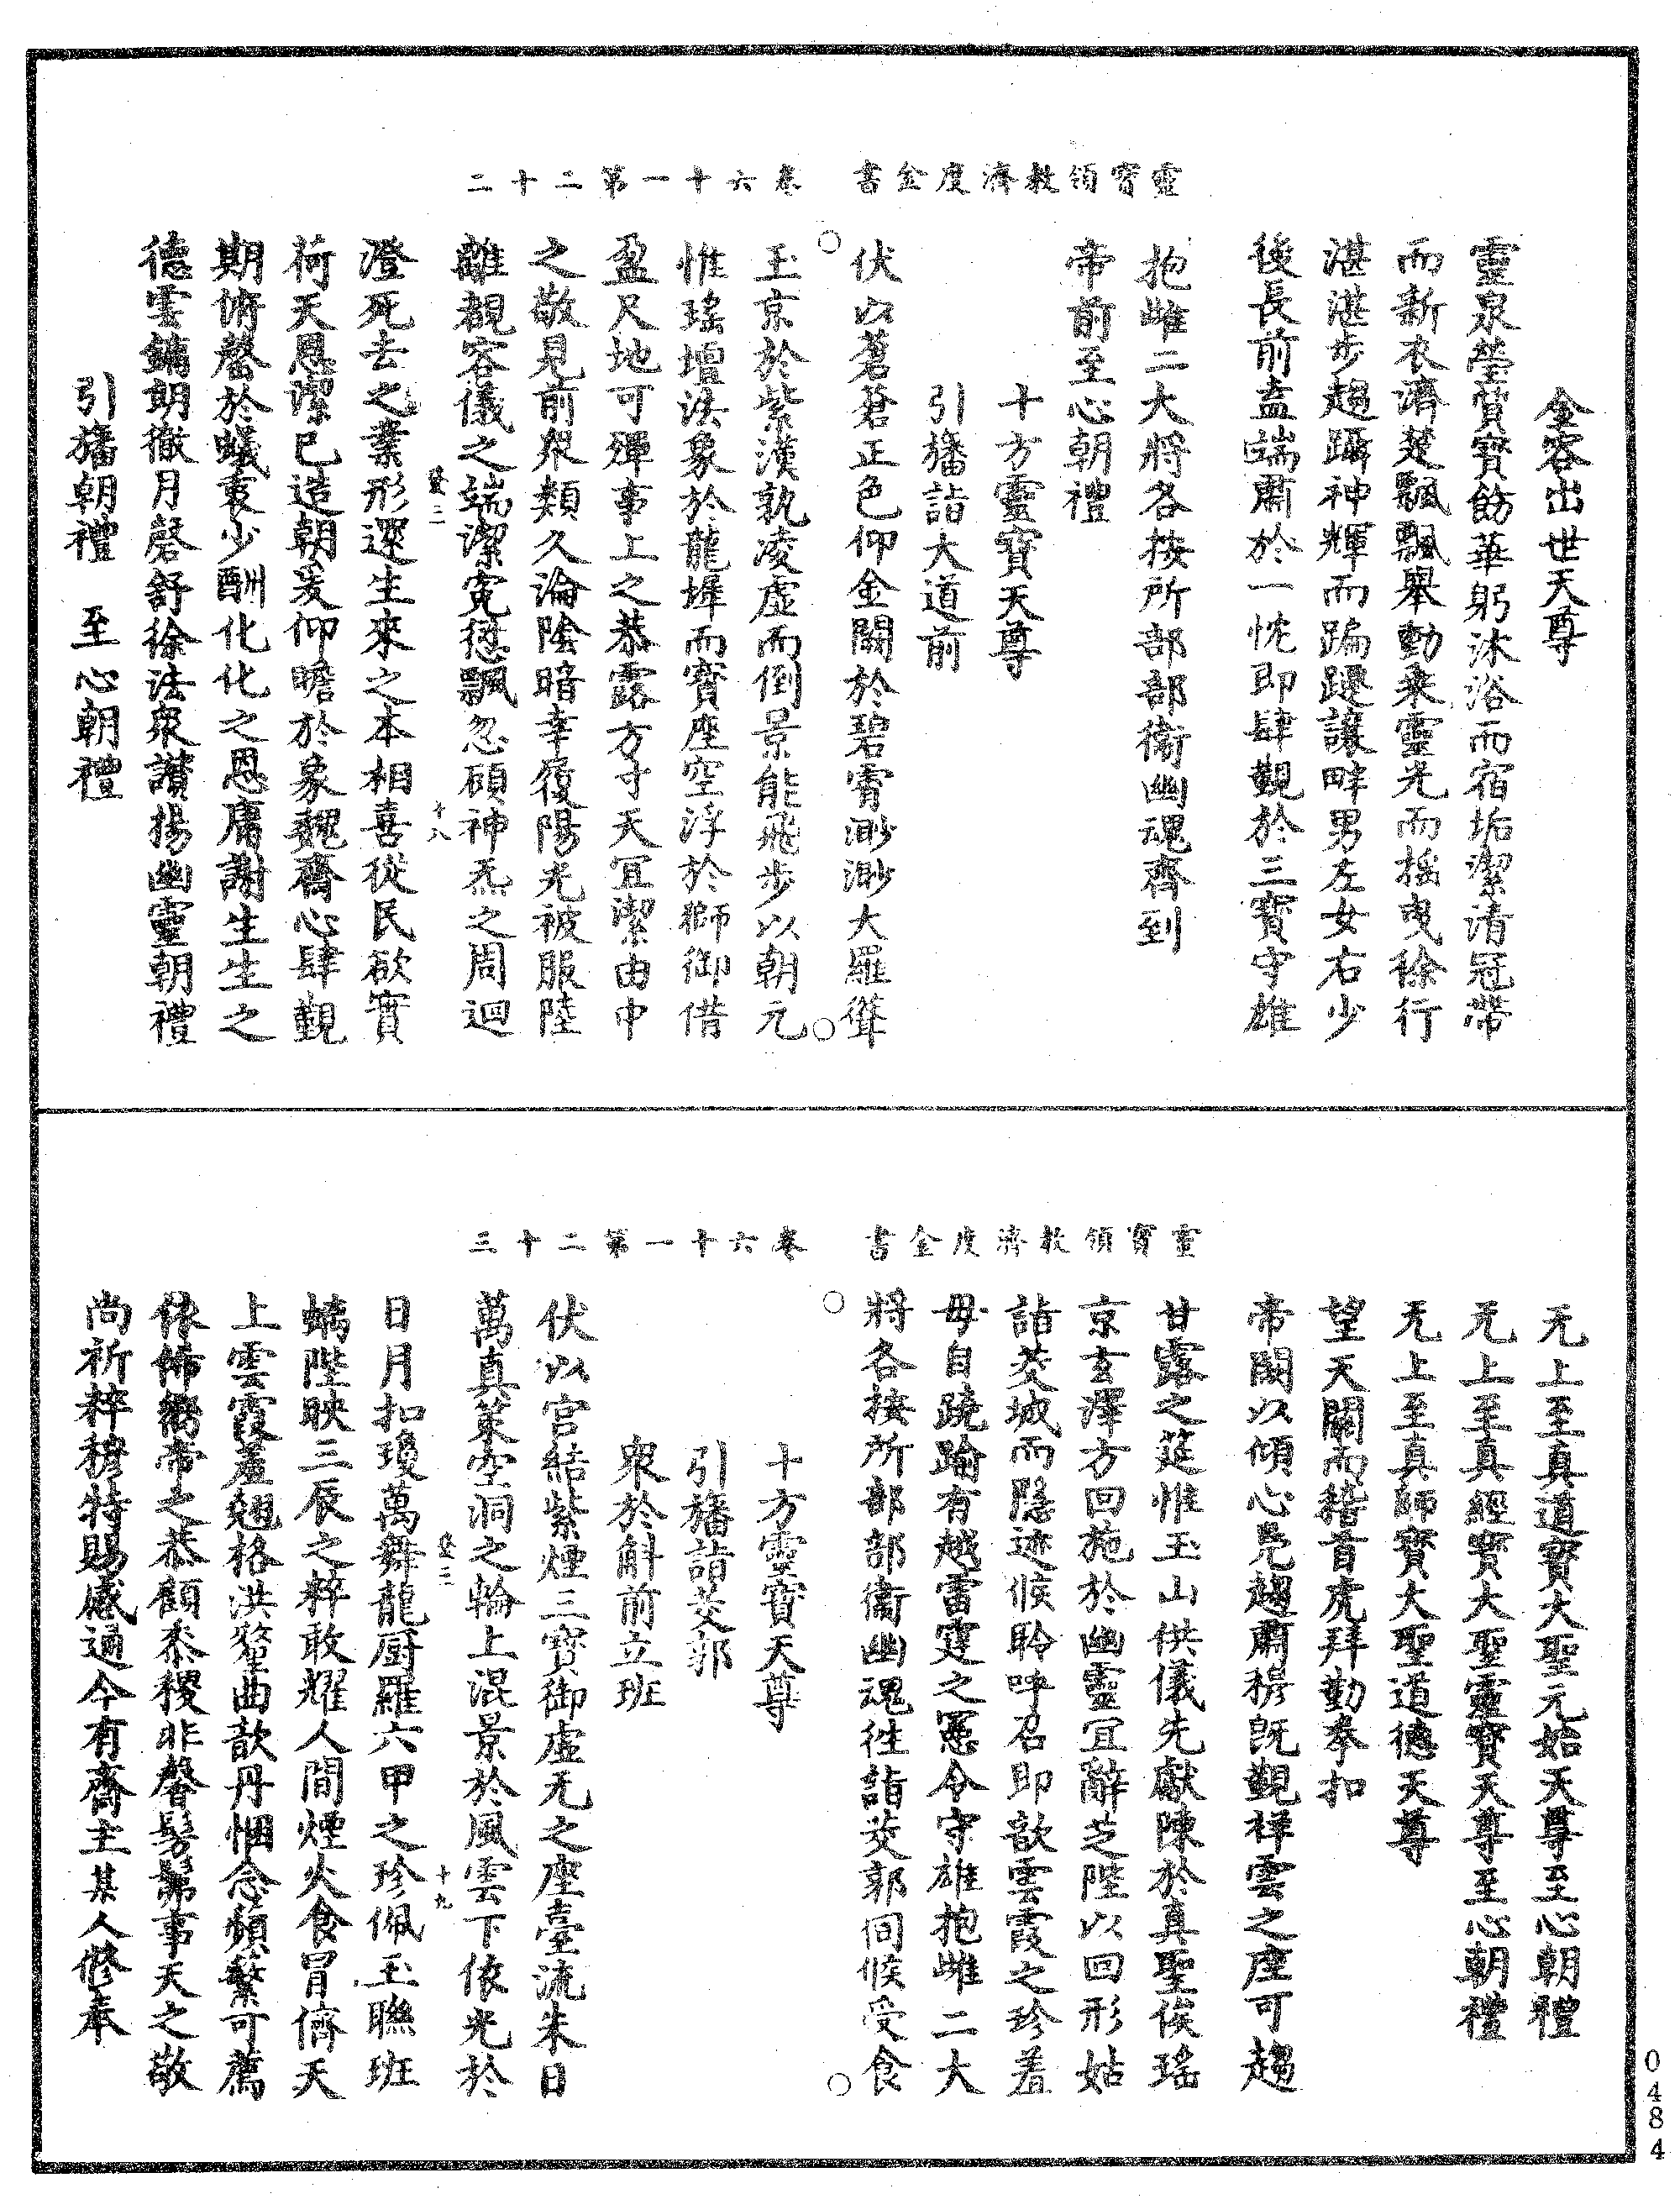 靈寶領教濟度金書　卷六十一第二十二
金容出世天尊
靈泉瑩質寶飭華躬沐浴而宿垢潔清冠帶
而新衣濟楚飄飄舉動乘靈光而搖曳徐行
湛湛步趨躡神輝而蹁躚讓畔男左女右少
後長前盍端肅於一忱即肆覲於三寶守雄
抱雌二大將各按所部部衞幽魂齊到
帝前至心朝禮
十方靈寶天尊
引旛詣大道前
伏以蒼蒼正色仰金闕於碧霄渺渺大羅聳
玉京於紫漢孰凌虛而倒景能飛步以朝元
惟瑤壇法象於龍墀而寶座空浮於獅御借
盈尺地可殫事上之恭露方寸天冝潔由中
之敬見前衆類久淪陰暗幸復陽光被服陸
離覩容儀之端潔寃愆飄忽碩神炁之周迴
登三　十八
澄死去之業形還生來之本相喜從民欲實
荷天恩潔已造朝爰仰瞻於象魏齋心肆覲
期俯罄於蟻衷少酬化化之恩庸謝生生之
德雲鏞朗徹月磬舒徐法衆讚揚幽靈朝禮
引旛朝禮　至心朝禮
靈寶領教濟度金書　卷六十一第二十三
无上至真道寶大聖元始天尊至心朝禮
无上至真經寶大聖靈寶天尊至心朝禮
无上至真師寶大聖道德天尊
望天關而稽首虎拜勤拳扣
帝閽以傾心鳧趨肅穆旣覲祥雲之座可趨
甘露之筵惟玉山供儀先獻陳於真聖俟瑤
京玄澤方回施於幽靈冝辭芝陛以回形姑
詣茭城而隱迹候聆呼召即歆雲霞之珍羞
毋自蹺踰有越雷霆之憲令守雄抱雌二大
將各按所部部衞幽魂徃詣茭郭伺候受食
十方靈寶天尊
引旛詣茭郭
衆於斛前立班
伏以宫結紫煙三寶御虛无之座臺流朱日
萬真策空洞之輪上混景於風雲下依光於
登三　十九
日月扣瓊萬舞龍厨羅六甲之珍佩玉聯班
螭陛映三辰之粹敢耀人間煙火食冒儕天
上雲霞羞翹格洪𨤲曲歆丹悃念蘋蘩可薦
依俙饗帝之恭顧黍稷非馨髣髴事天之敬
尚祈粹穆特賜感通今有齋主某人修奉
0484